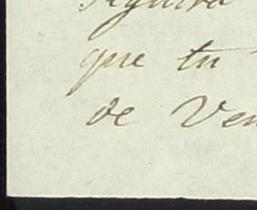 que tu
de Ven